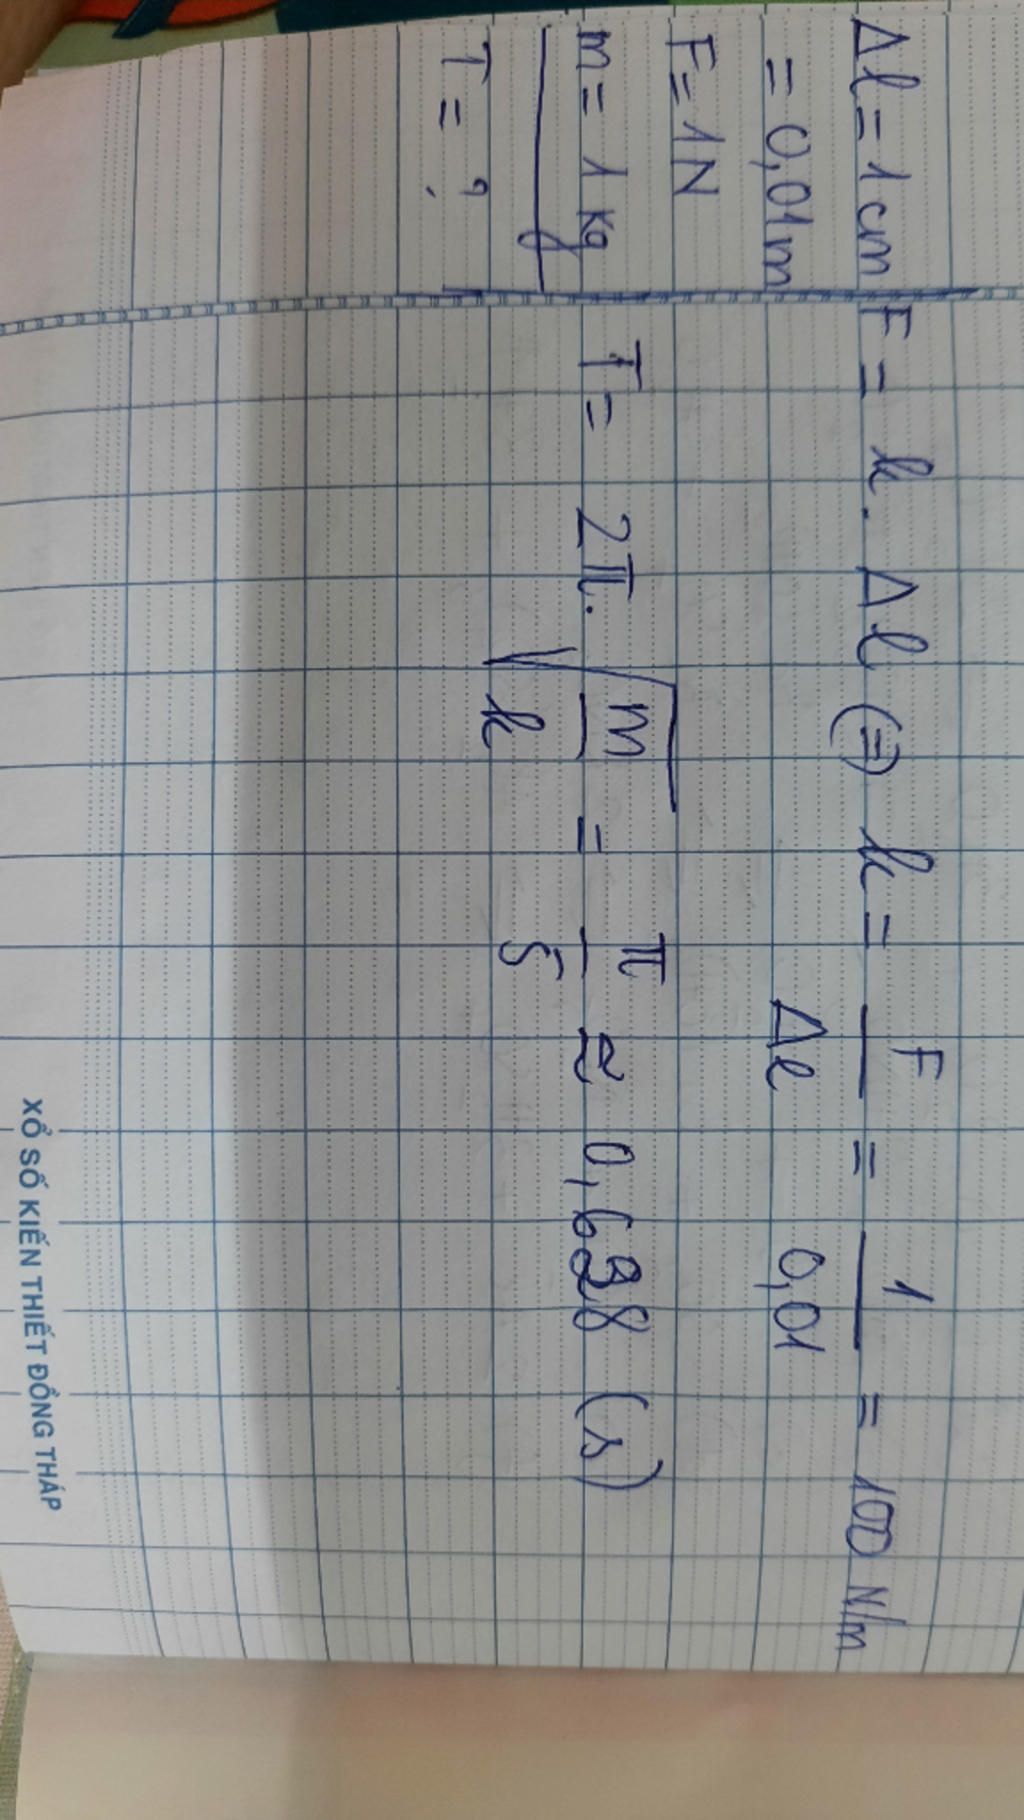 Δl = 1 cm
= 0,01m
F = 1N
m = 1 kg
T = ?
F = k. Δl (=) k = F/Δl = 1/0,01 = 100 N/m
T = 2π. √(m/k) = π/5 ≈ 0,628 (s)
XỔ SỐ KIẾN THIẾT ĐỒNG THÁP